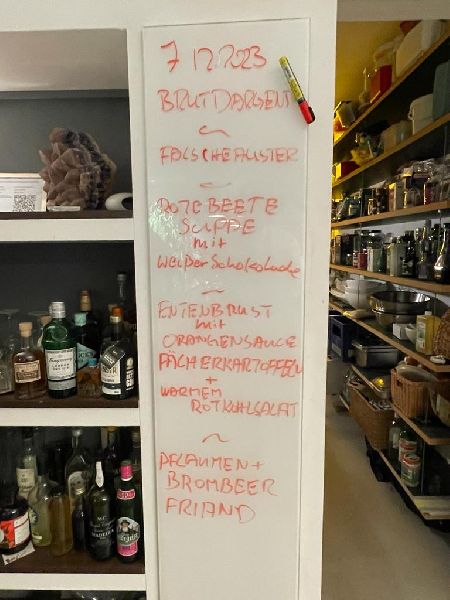 7 12.2023
BRUT DARGENT
~
FALSCHE AUSTER
~
ROTE BEETE
SUPPE
mit
weißer Schokolade
~
ENTENBRUST
mit
ORANGENSAUCE
FÄCHERKARTOFFELN
+
WARMEM
ROTKOHLSALAT
~
PFLAUMEN +
BROMBEER
FRIAND